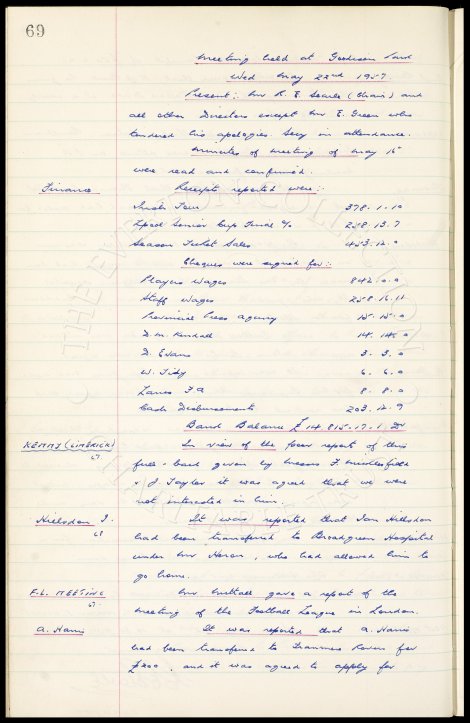 69
Meeting held at Goodison Park
Wed May 22nd 1957.
Present:- Mr R. E. Searle (Chair) and
all other Directors except Mr E. Green who
tendered his apologies. Secy in attendance.
Minutes of meeting of May 15
were read and confirmed.
Finance Receipts reported were:-
Irish Tour 378.1.10
Lpool Senior Cup Final % 258.13.7
Season Ticket Sales 453.12.0
Cheques were signed for:-
Players Wages 842.0.0
Staff Wages 258.16.11
Provincial Press Agency 15.15.0
D. M. Kendall 14.14.0
D. Evans 3.3.0
W. Tidy 6.6.0
Lancs F A 8.8.0
Cash Disbursements 203.12.9
Bank Balance £14815.17.1 Dr
KENNY (LIMERICK) In view of the poor report of this
67.
full-back given by Messrs F.
& J. Taylor it was agreed that we were
not interested in him.
Hillsdon I. It was reported that Ian Hillsdon
68
had been transferred to Broadgreen Hospital
under Mr Heron, who had allowed him to
go home.
F.L. MEETING Mr gave a report of the
67.
meeting of the Football League in London.
A. Harris It was reported that A. Harris
had been transferred to Tranmere Rovers for
£200, and it was agreed to apply for
THE EVERTON COLLECTION